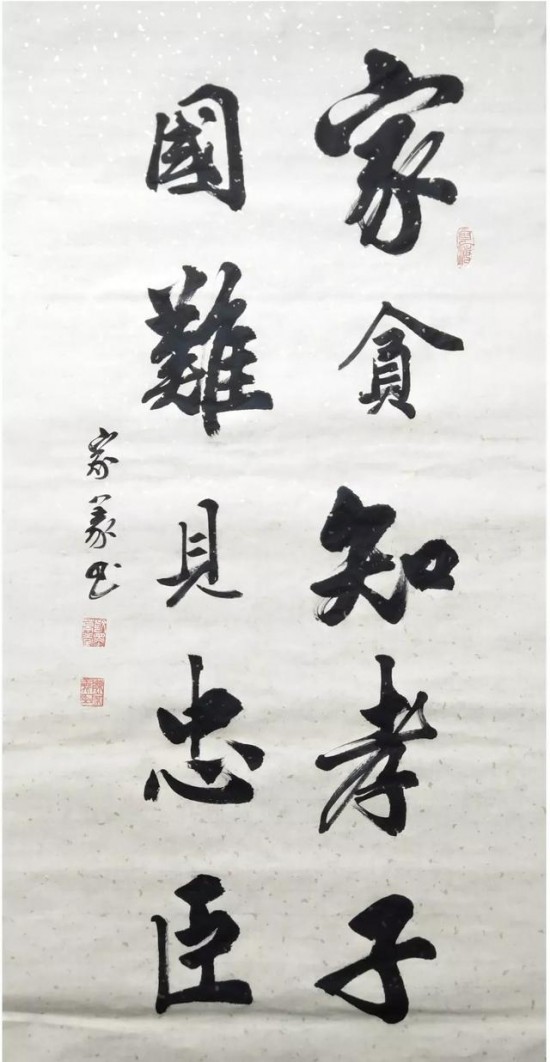 家貧知孝子
國難見忠臣
家義书